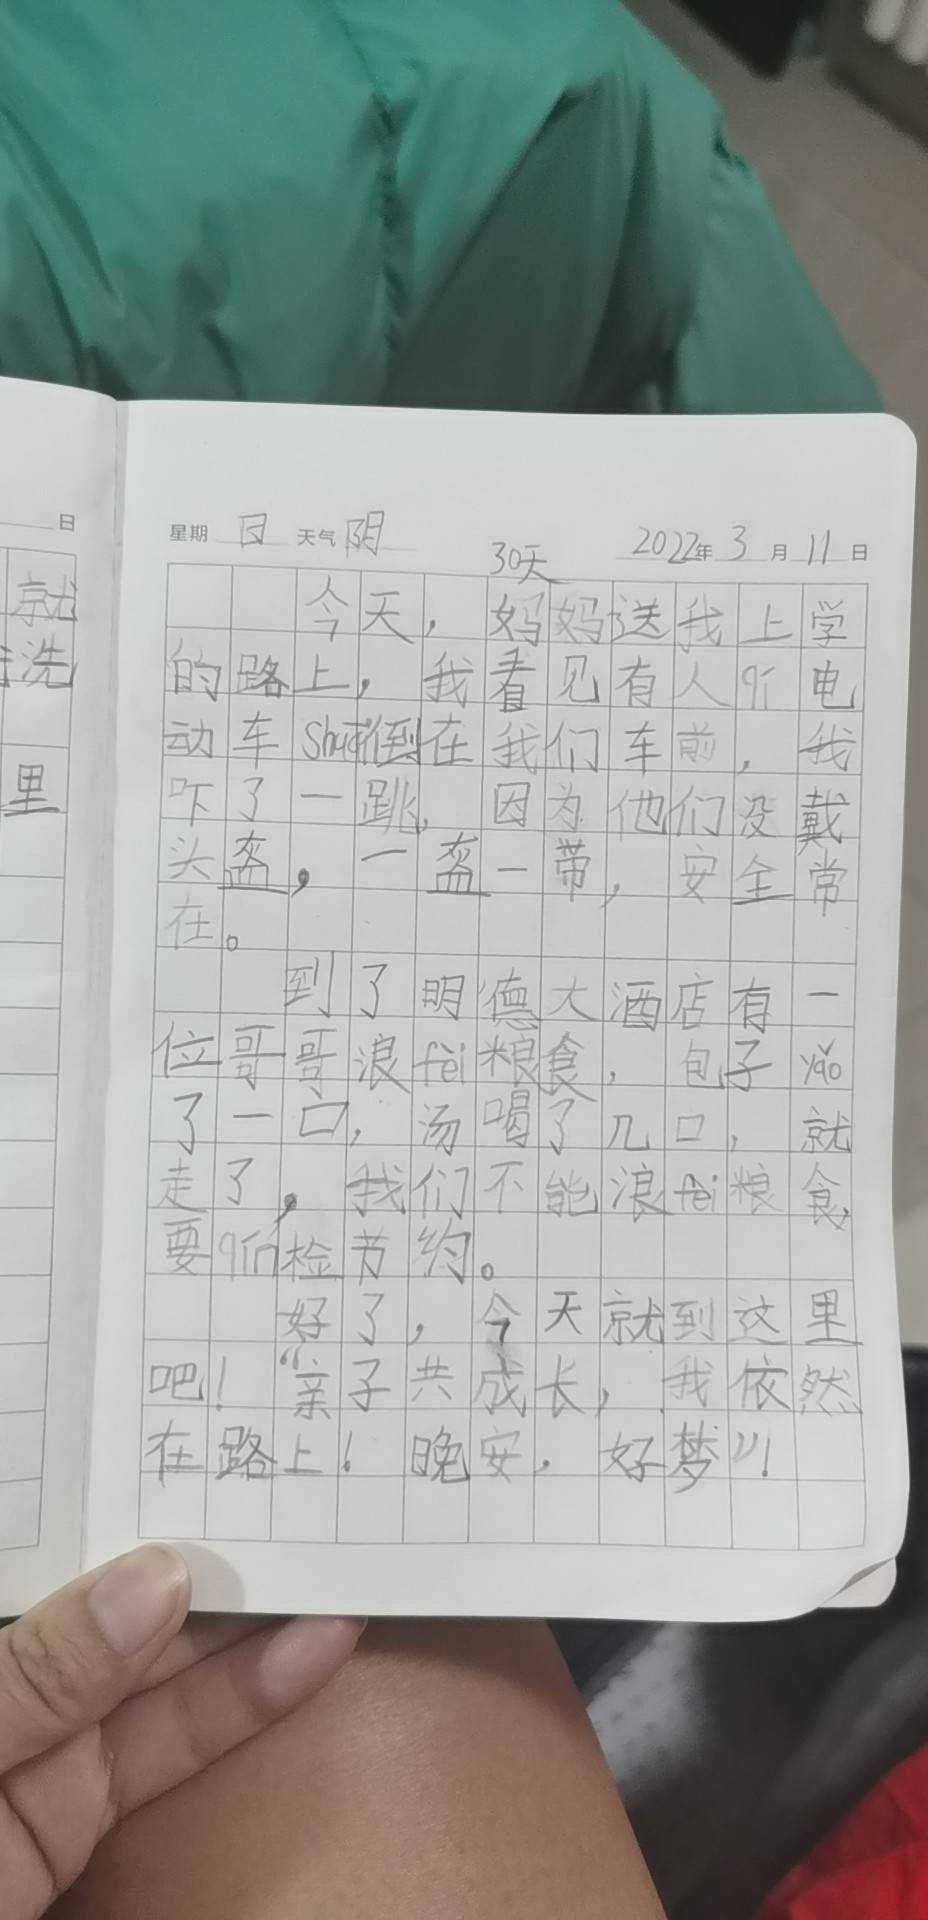 日
就
洗
里
星期 日 天气 阴 2022年 3 月 11 日
30天
今天，妈妈送我上学
的路上，我看见有人qí电
动车shuāi倒在我们车前，我
吓了一跳，因为他们没戴
头盔，一盔一带，安全常
在。
到了明德大酒店有一
位哥哥浪fèi粮食，包子yǎo
了一口，汤喝了几口，就
走了，我们不能浪fèi粮食，
要qín检节约。
好了，今天就到这里
吧！“亲子共成长，我依然
在路上！晚安，好梦”！